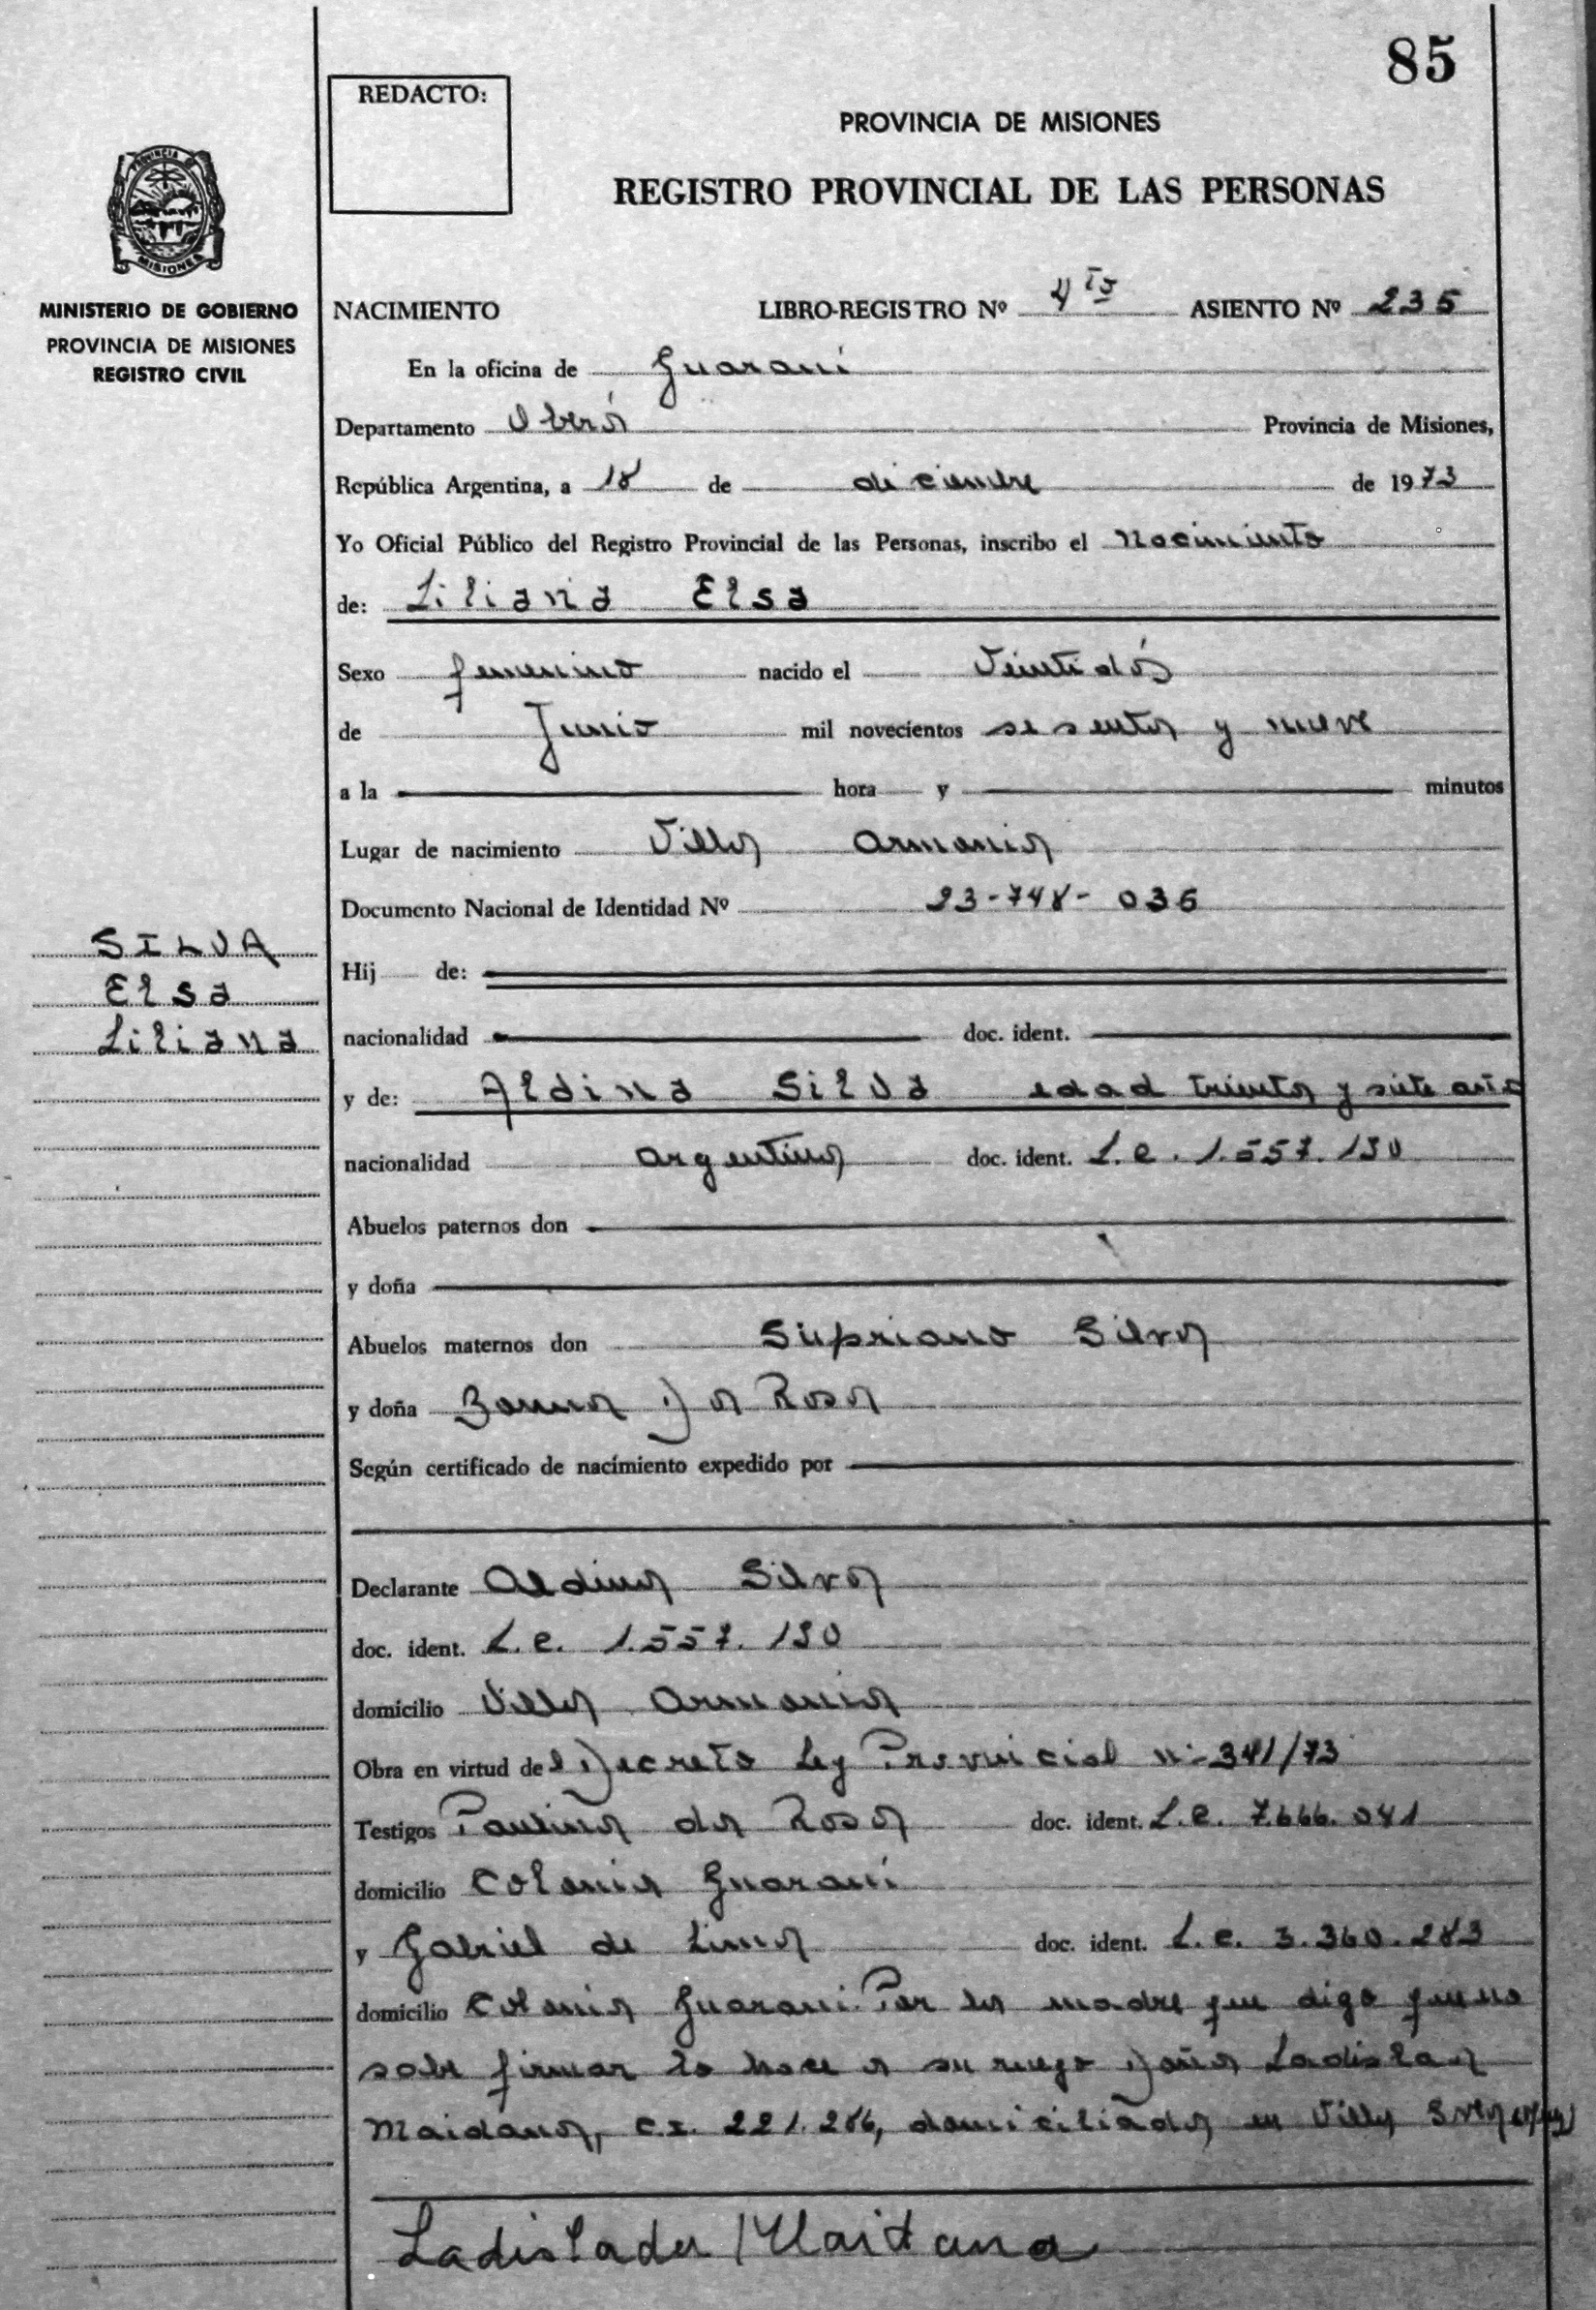 85
REDACTO:
PROVINCIA DE MISIONES
REGISTRO PROVINCIAL DE LAS PERSONAS
PROVINCIA DE
MISIONES
MINISTERIO DE GOBIERNO
PROVINCIA DE MISIONES
REGISTRO CIVIL
NACIMIENTO LIBRO-REGISTRO Nº 4to ASIENTO Nº 235
En la oficina de Guaraní
Departamento Oberá Provincia de Misiones,
República Argentina, a 18 de diciembre de 1973
Yo Oficial Público del Registro Provincial de las Personas, inscribo el Nacimiento
de: Liliana Elsa
Sexo femenino nacido el Veintidós
de Junio mil novecientos sesenta y nueve
a la hora y minutos
Lugar de nacimiento Villa Armonia
Documento Nacional de Identidad Nº 23-748-036
SILVA
Elsa
Liliana
Hij de:
nacionalidad doc. ident.
y de: Aldina Silva edad treinta y siete años
nacionalidad argentina doc. ident. L.C. 1.557.130
Abuelos paternos don
y doña
Abuelos maternos don Sipriano Silva
y doña Da Rosa
Según certificado de nacimiento expedido por
Declarante Aldina Silva
doc. ident. L.C. 1.557.130
domicilio Villa Armonia
Obra en virtud del Decreto Ley Provincial nº 341/73
Testigos Paulina da Rosa doc. ident. L.E. 7.666.041
domicilio Colonia Guaraní
y Gabriel de Lima doc. ident. L.E. 3.360.283
domicilio Colonia Guarani. Por la madre que digo que no
sabe firmar lo hace a su ruego Doña Ladislaa
Maidana, C.I. 221.286, domiciliada en Villa
Ladislada Maidana